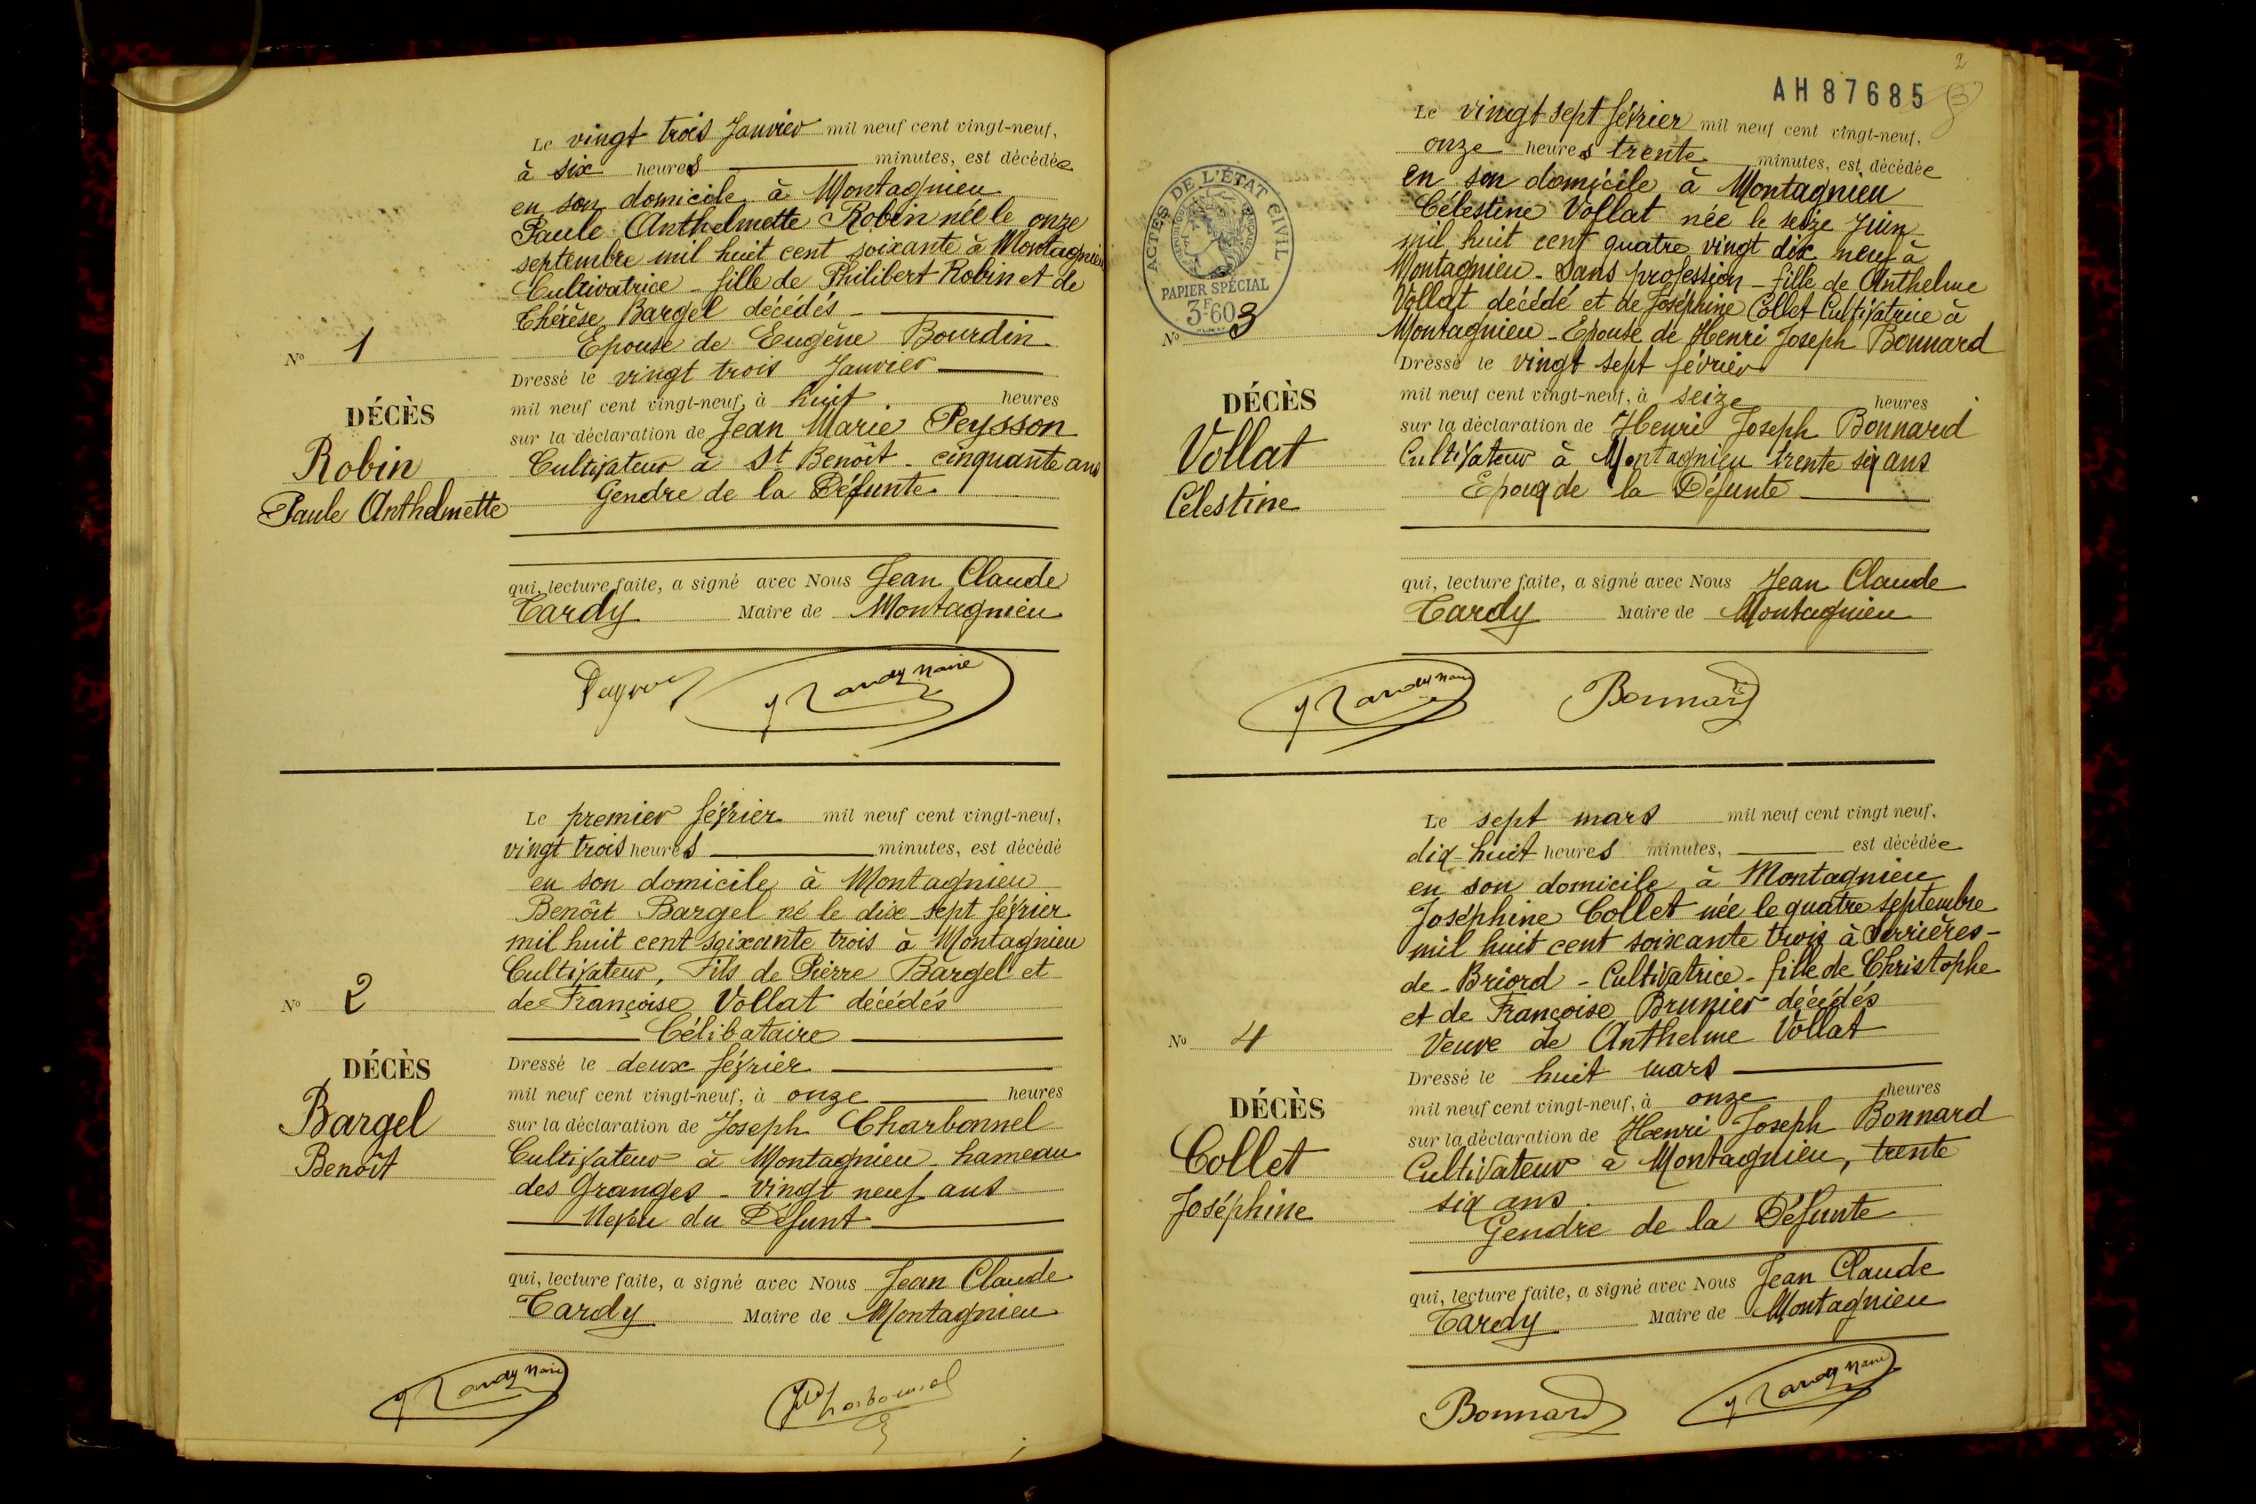 Le vingt trois Janvier mil neuf cent vingt-neuf,
à six heures minutes, est décédée
en son domicile à Montagnieu
Paule Anthelmette Robin née le onze
septembre mil huit cent soixante à Montagnieu
Cultivatrice - fille de Philibert Robin et de
Thérèse Bargel décédés -
Epouse de Eugène Bourdin
Nº 1
DÉCÈS
Robin
Paule Anthelmette
Dressé le vingt trois Janvier
mil neuf cent vingt-neuf, à huit heures
sur la déclaration de Jean Marie Peysson
Cultivateur à St Benoît - cinquante ans
Gendre de la Défunte
qui, lecture faite, a signé avec Nous Jean Claude
Tardy Maire de Montagnieu
Tardy Maire
Le premier février mil neuf cent vingt-neuf,
vingt trois heures minutes, est décédé
en son domicile à Montagnieu
Benoît Bargel né le dix-sept février
mil huit cent soixante trois à Montagnieu
Cultivateur, Fils de Pierre Bargel et
de Françoise Vollat décédés
Célibataire
Nº 2
DÉCÈS
Bargel
Benoît
Dressé le deux février
mil neuf cent vingt-neuf, à onze heures
sur la déclaration de Joseph Charbonnel
Cultivateur à Montagnieu hameau
des Granges - Vingt neuf ans
Neveu du Défunt
qui, lecture faite, a signé avec Nous Jean Claude
Tardy Maire de Montagnieu
Tardy Maire
Charbonnel
2
AH87685
ACTES DE L'ÉTAT CIVIL
PAPIER SPÉCIAL
3F60
Le vingt sept février mil neuf cent vingt-neuf,
onze heures trente minutes, est décédée
en son domicile à Montagnieu
Célestine Vollat née le seize Juin
mil huit cent quatre vingt dix neuf à
Montagnieu - Sans profession - fille de Anthelme
Vollat décédé et de Joséphine Collet Cultivatrice à
Montagnieu - Epouse de Henri Joseph Bonnard
Nº 3
DÉCÈS
Vollat
Célestine
Dressé le vingt sept février
mil neuf cent vingt-neuf, à seize heures
sur la déclaration de Henri Joseph Bonnard
Cultivateur à Montagnieu trente six ans
Epoux de la Défunte
qui, lecture faite, a signé avec Nous Jean Claude
Tardy Maire de Montagnieu
Tardy Maire Bonnard
Le sept mars mil neuf cent vingt neuf,
dix-huit heures minutes, est décédée
en son domicile à Montagnieu
Joséphine Collet née le quatre septembre
mil huit cent soixante trois à Serrières-
de-Briord - Cultivatrice - fille de Christophe
et de Françoise Brunier décédés
Veuve de Anthelme Vollat
Nº 4
DÉCÈS
Collet
Joséphine
Dressé le huit mars
mil neuf cent vingt-neuf, à onze heures
sur la déclaration de Henri Joseph Bonnard
Cultivateur à Montagnieu, trente
six ans
Gendre de la Défunte
qui, lecture faite, a signé avec Nous Jean Claude
Tardy Maire de Montagnieu
Bonnard Tardy Maire